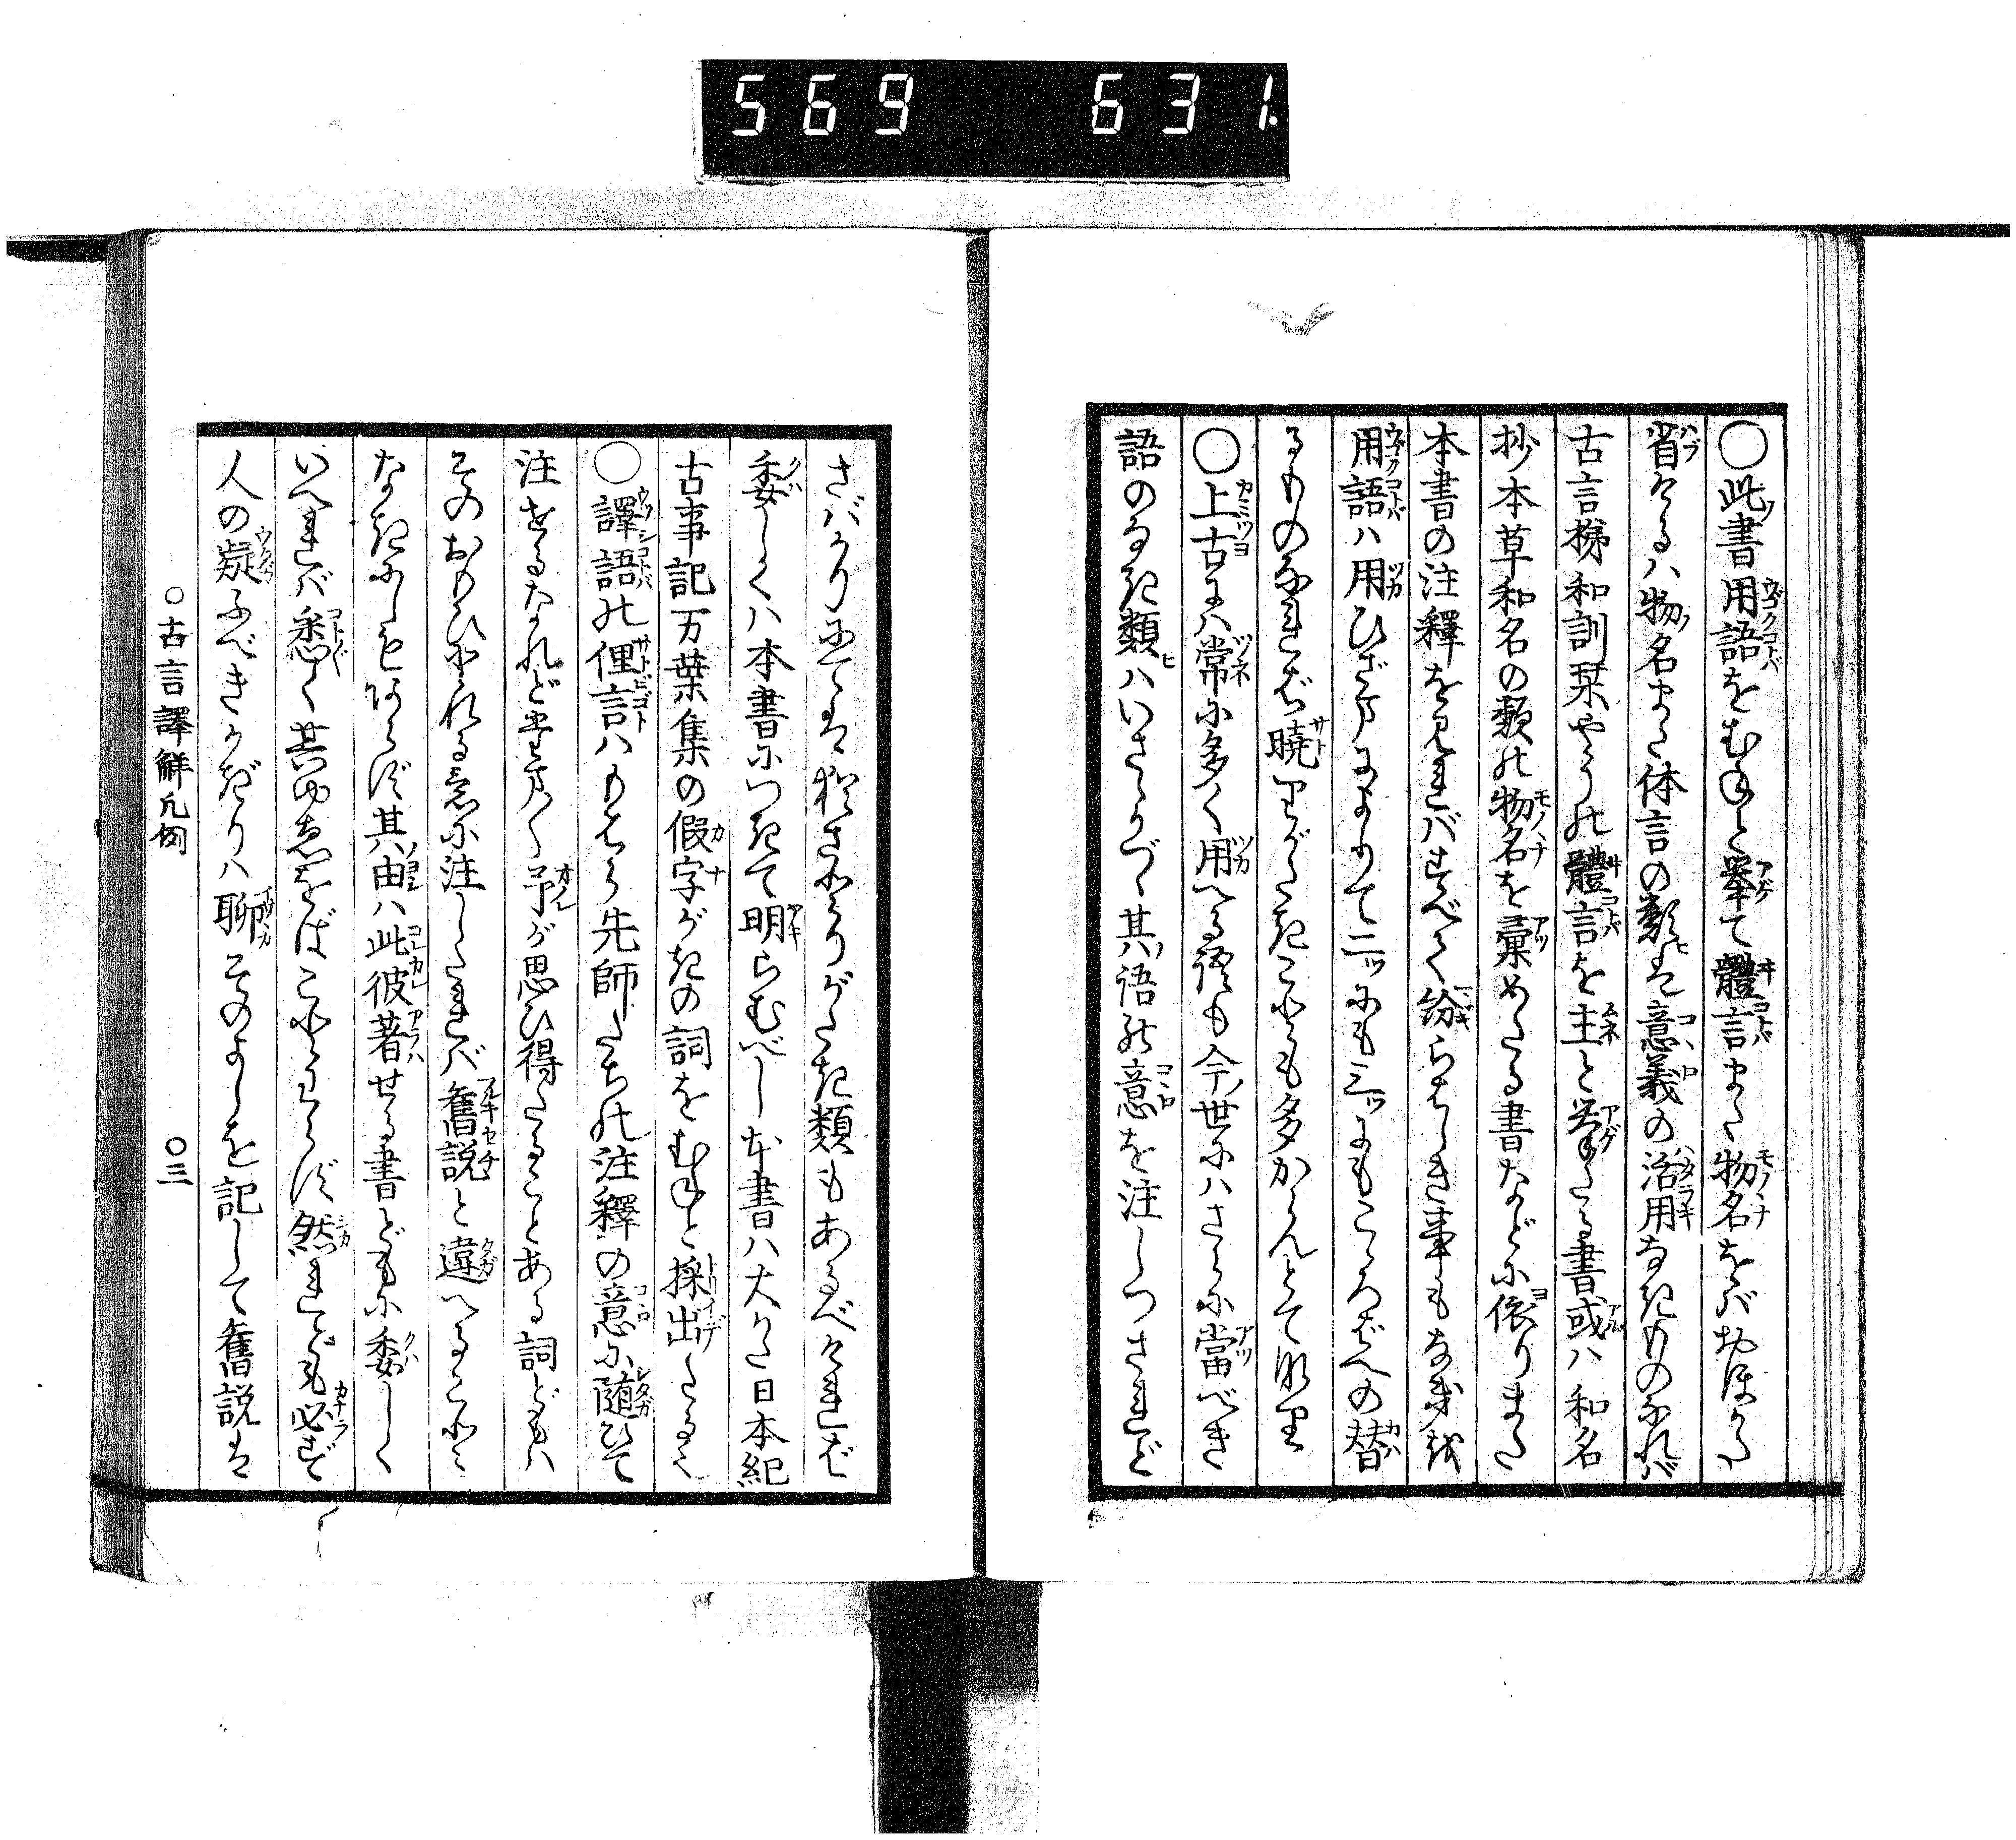 569 631.
○此書用語をむねと挙て體言また物名をバおほかた
省けるハ物名また体言の類は意義の活用なきものなれバ
古言梯和訓栞やうの體言を主と挙たる書或ハ和名
抄本草和名の類の物名を彙めたる書などに依りまた
本書の注釋を見れバすべて紛らはしき事もなきを
用語ハ用ひざまによりて二ッにも三ッにもこゝろばへの替
るものなれば暁りがたきことも多からんとてなり
○上古には常に多く用へる語も今世にハさらに當べき
語のなき類ハいさゝかづゝ其語の意を注しつされど
さバかりにては猶さとりがたき類もあるべければ
委しくハ本書につきて明らむべし本書ハ大かた日本紀
古事記万葉集の假字がきの詞をむねと採出たるなり
○譯語の俚言ハもはら先師たちの注釋の意に随ひて
注せるなれど希々予が思ひ得たることある詞どもハ
そのおもひとれる意に注したれバ舊説と違へることゞ
なきにしもあらず其由ハ此彼著せる書どもに委しく
いへれバ悉く其ゆゑをばことわらず然れども必ず
人の疑ふべきかぎりハ聊そのよしを記して舊説は
○古言譯解凡例 ○三